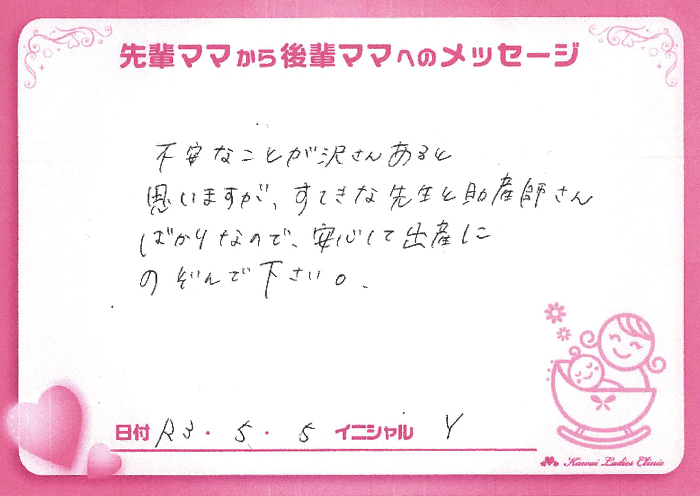 先輩ママから後輩ママへのメッセージ
不安なことが沢さんあると
思いますが、すてきな先生と助産師さん
ばかりなので、安心して出産に
のぞんで下さい。
日付 R3・5・5 イニシャル Y
Kawai Ladies Clinic